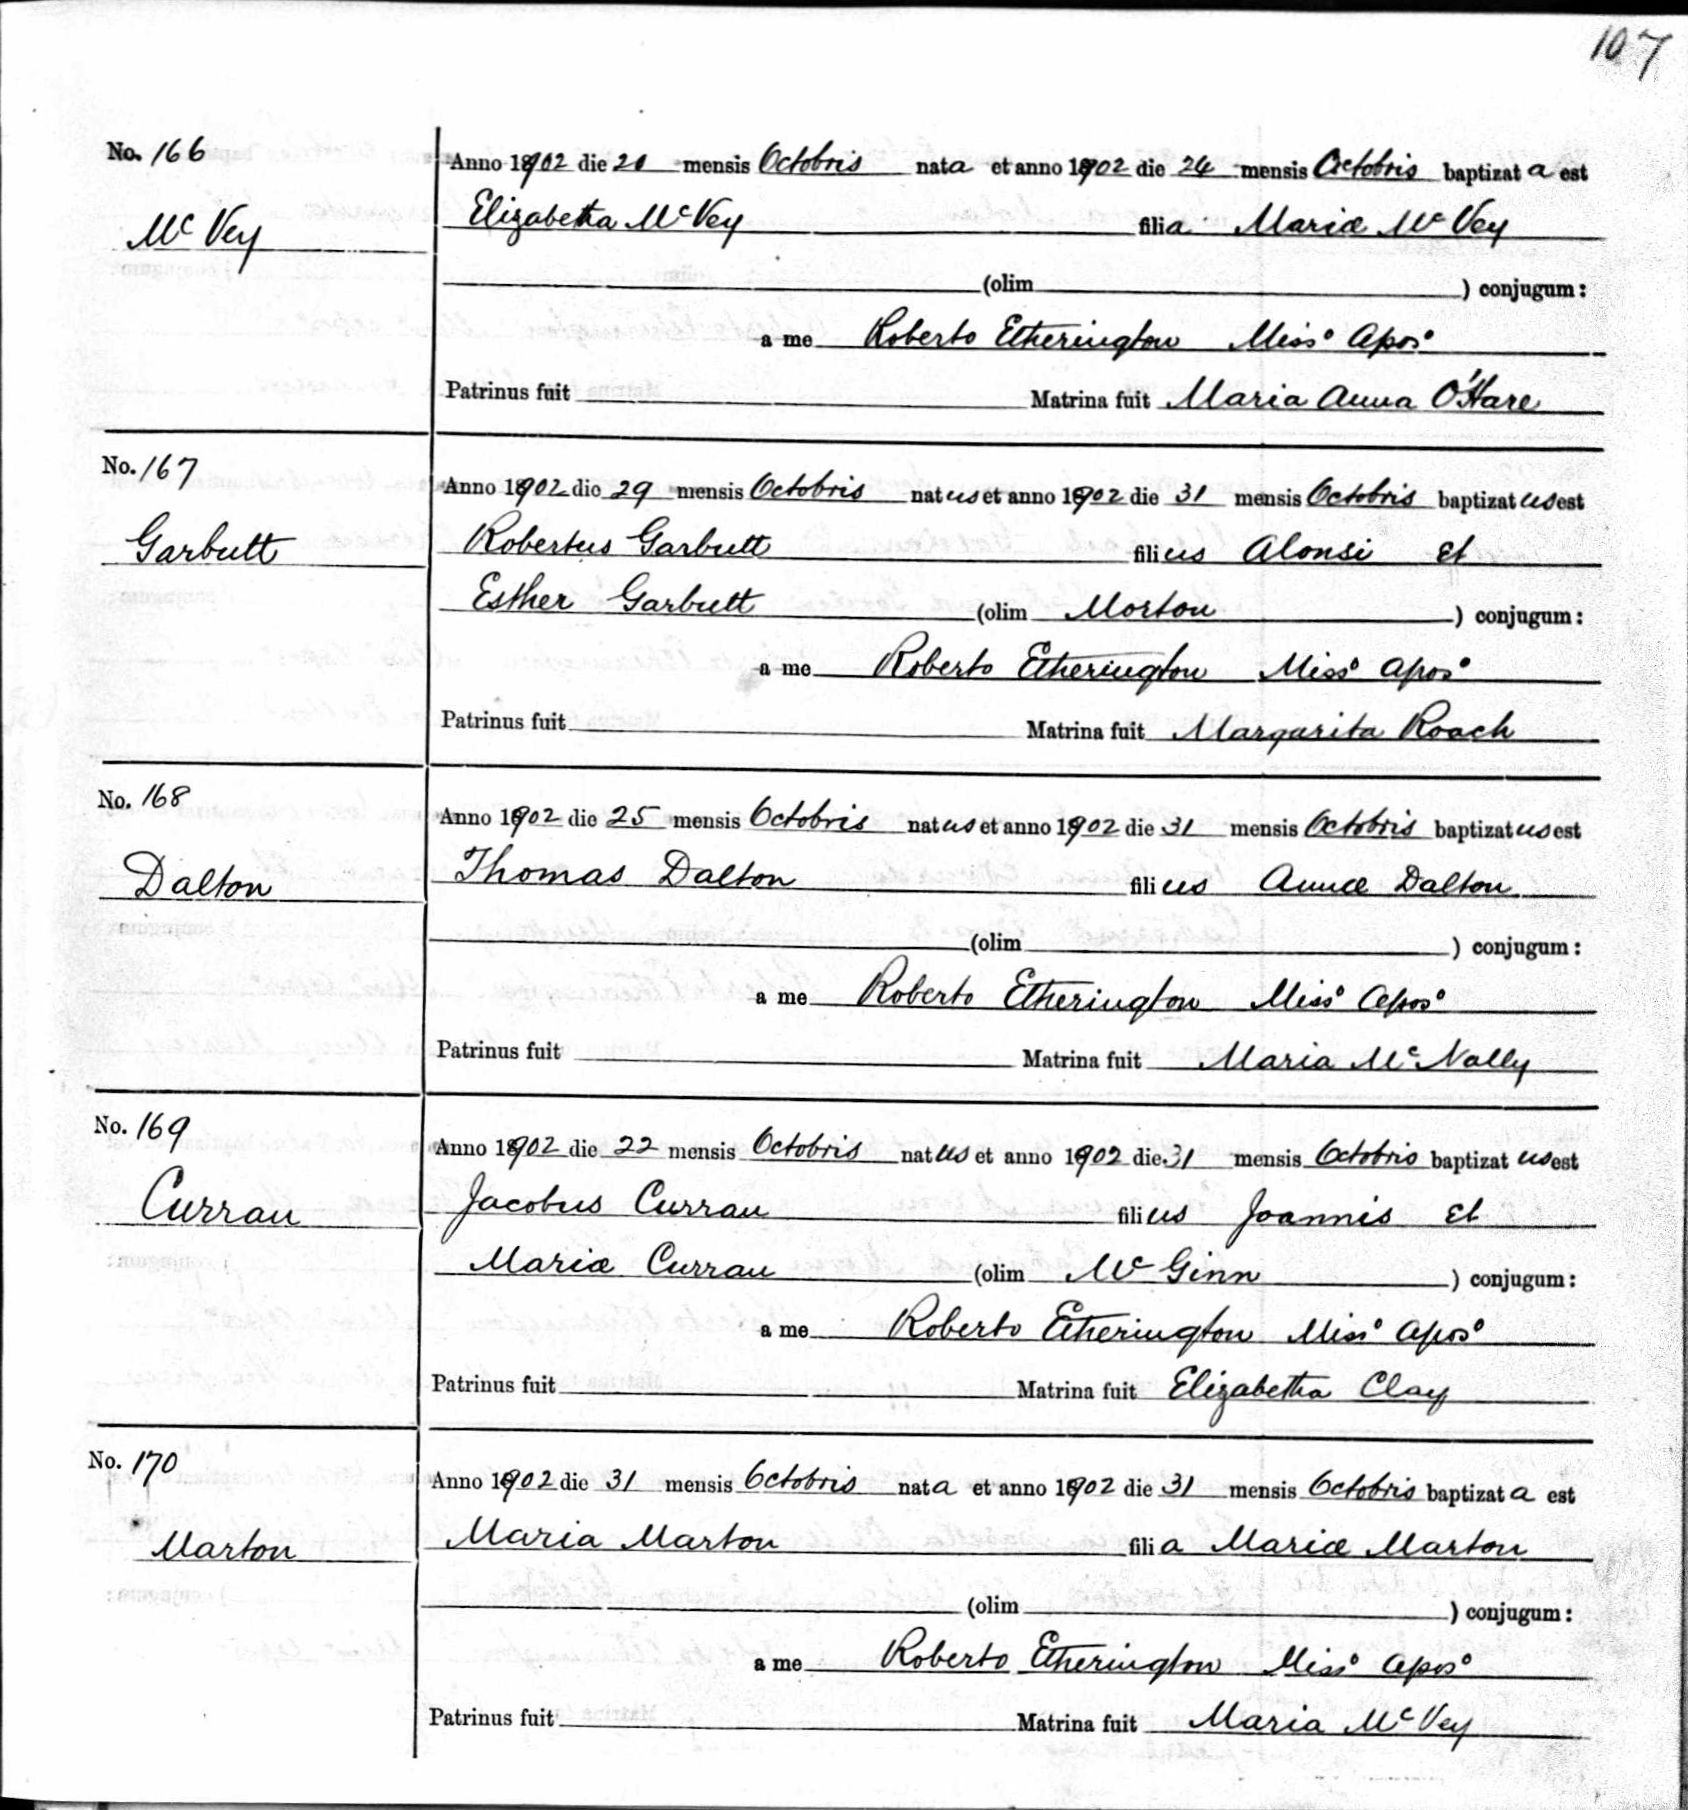 107
No. 166
Anno 1902 die 20 mensis Octobris nata et anno 1902 die 24 mensis Octobris baptizata est
McVey
Elizabetha McVey filia Mariæ McVey
(olim ) conjugum:
a me Roberto Etherington Miss° Apos°
Patrinus fuit Matrina fuit Maria Anna O'Hare
No. 167
Anno 1902 die 29 mensis Octobris natus et anno 1902 die 31 mensis Octobris baptizatus est
Garbutt
Robertus Garbutt filius Alonsi et
Esther Garbutt (olim Morton ) conjugum:
a me Roberto Etherington Miss° Apos°
Patrinus fuit Matrina fuit Margarita Roach
No. 168
Anno 1902 die 25 mensis Octobris natus et anno 1902 die 31 mensis Octobris baptizatus est
Dalton
Thomas Dalton filius Annæ Dalton
(olim ) conjugum:
a me Roberto Etherington Miss° Apos°
Patrinus fuit Matrina fuit Maria McNally
No. 169
Anno 1902 die 22 mensis Octobris natus et anno 1902 die 31 mensis Octobris baptizatus est
Curran
Jacobus Curran filius Joannis et
Mariæ Curran (olim McGinn ) conjugum:
a me Roberto Etherington Miss° Apos°
Patrinus fuit Matrina fuit Elizabetha Clay
No. 170
Anno 1902 die 31 mensis Octobris nata et anno 1902 die 31 mensis Octobris baptizata est
Marton
Maria Marton filia Mariæ Marton
(olim ) conjugum:
a me Roberto Etherington Miss° Apos°
Patrinus fuit Matrina fuit Maria McVey